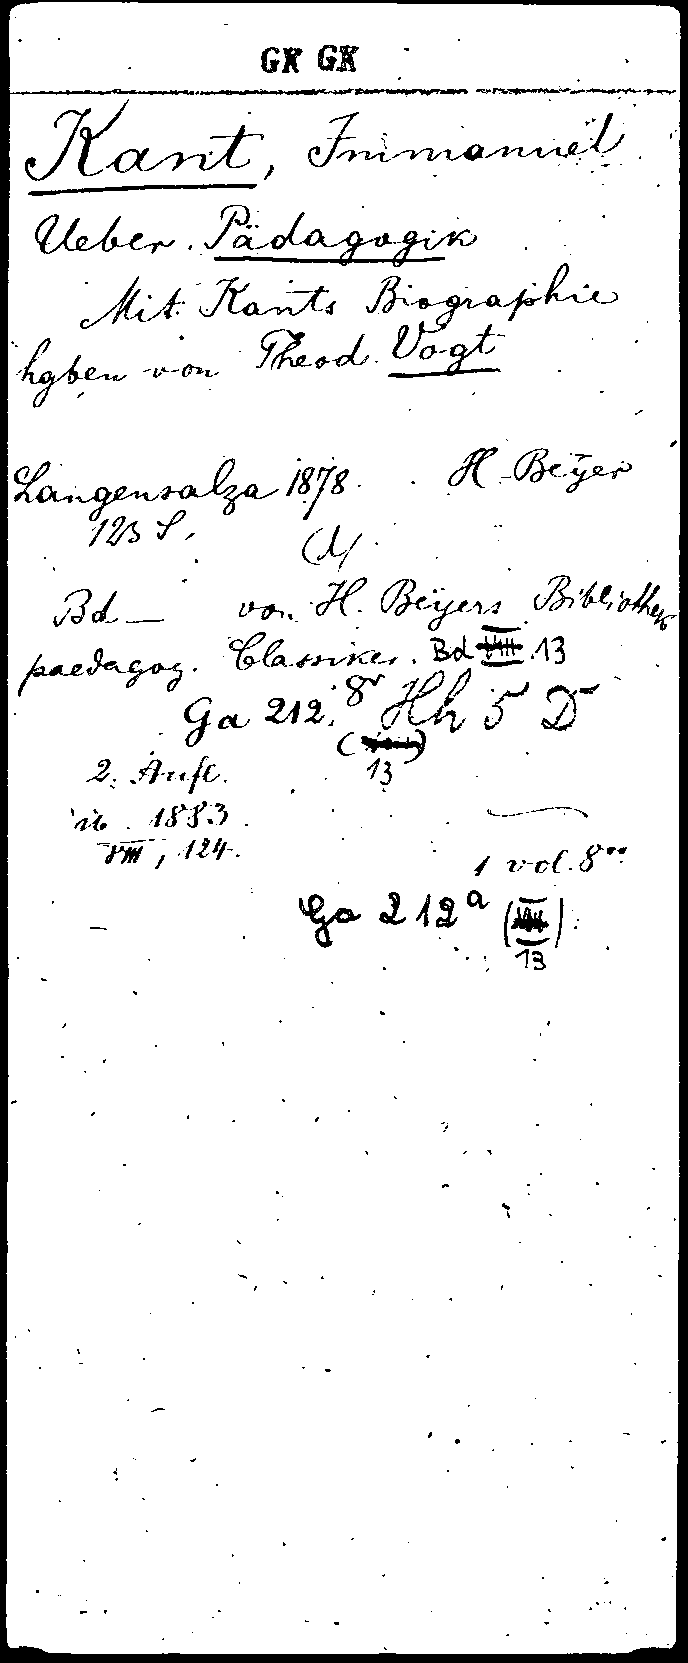 GK GK
Kant, Immanuel
Ueber Pädagogik
Mit Kants Biographie
hgben von Theod. Vogt
Langensalza 1878. H. Beyer
123 S.
Bd — von H. Beyers Bibliothek
paedagog. Classiker. Bd 13
Ga 212. 8º Hh 5 D
13
2. Aufl.
ib. 1883
VIII, 124.
1 vol. 8º
Ga 212a
13